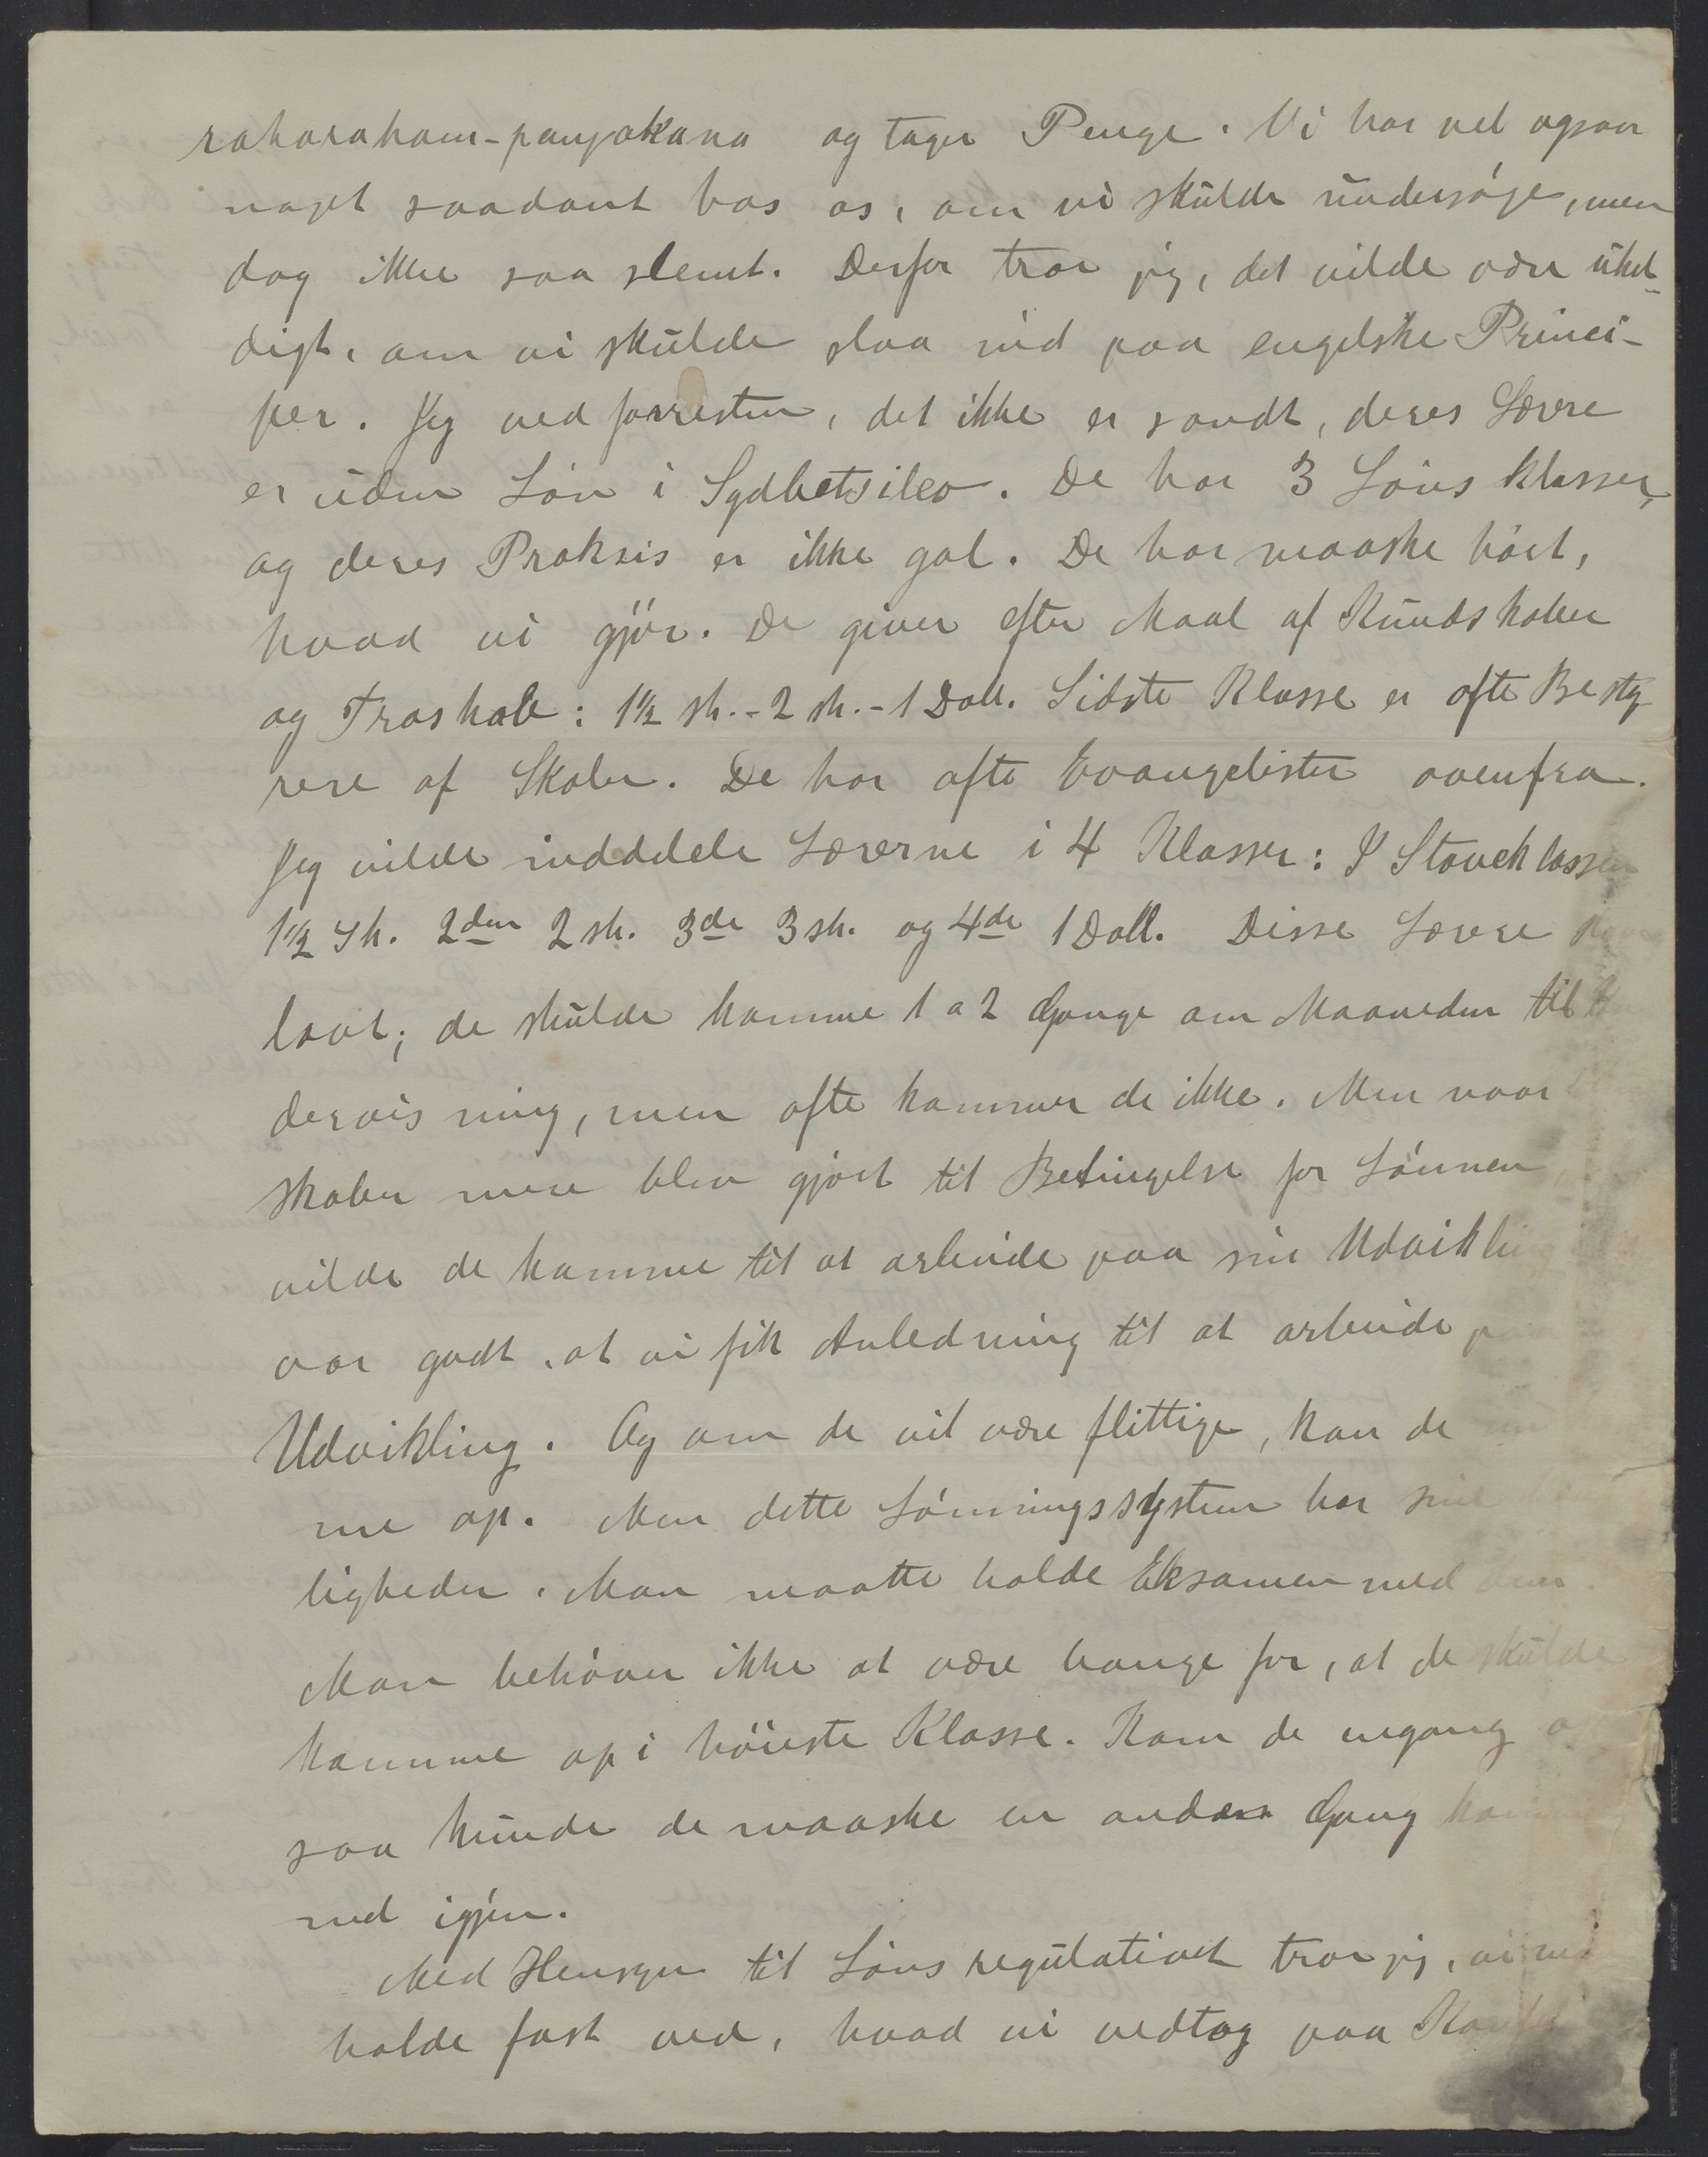 raharaham-panjakana og tager Penge. Vi har vel ogsaa
noget saadant hos os, om vi skulde undersøge, men
dog ikke saa slemt. Derfor tror jeg, det vilde være uhel-
digt, om vi skulde slaa ind paa engelske Princi-
per. Jeg ved forresten, det ikke er sandt, deres Lærere
er uden Løn i Sydbetsileo. De har 3 Lønsklasser,
og deres Praksis er ikke gal. De har maaske hørt,
hvad vi gjør. De giver efter Maal af Kundskaber
og Troskab: 1½ sh. - 2 sh. - 1 Doll. Sidste Klasse er ofte Besty
rere af Skoler. De har ofte Evangelister ovenfra.
Jeg vilde inddele Lærerne i 4 Klasser: I Staveklassen
1½ Sh. 2den 2 sh. 3de 3 sh. og 4de 1 Doll. Disse Lærere
lovt; de skulde komme 1 a 2 Gange om Maaneden til
dervisning, men ofte kommer de ikke. Men naar
skaber mere blev gjort til Betingelse for Lønnen,
vilde de komme til at arbeide paa sin Udvikli
var godt, at vi fik Anledning til at arbeide
Udvikling. Og om de vil være flittige, kan de
me op. Men dette Lønningssystem har sine
ligheder. Man maatte holde Eksamen med dem.
Man behøver ikke at være bange for, at de skulde
komme op i høieste Klasse. Kom de engang
saa kunde de maaske en anden Gang
ned igjen.
Med Hensyn til Lønsregulativet tror jeg, vi
holde fast ved, hvad vi vedtog paa